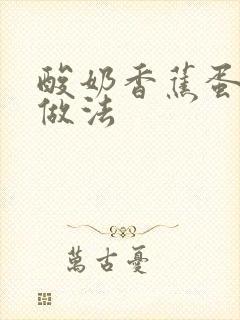 酸奶香蕉蛋
做法
萬古憂